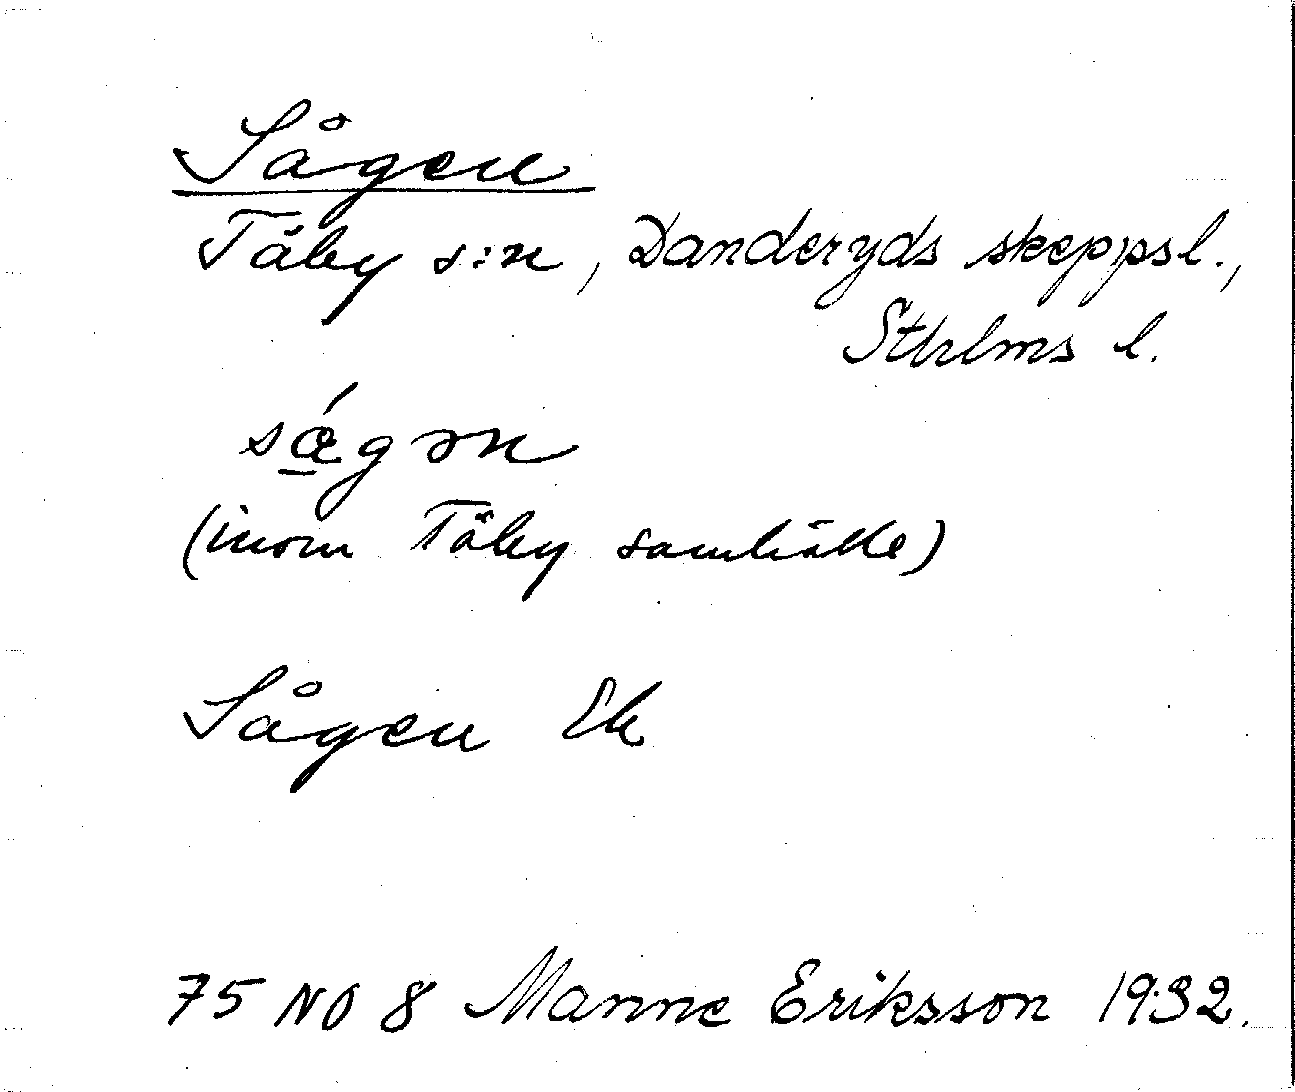 Sågen
Täby s:n, Danderyds skeppsl.,
Sthlms l.
sǽgən
(inom Täby samhälle)
Sågen Ek
75 NO 8 Manne Eriksson 1932.